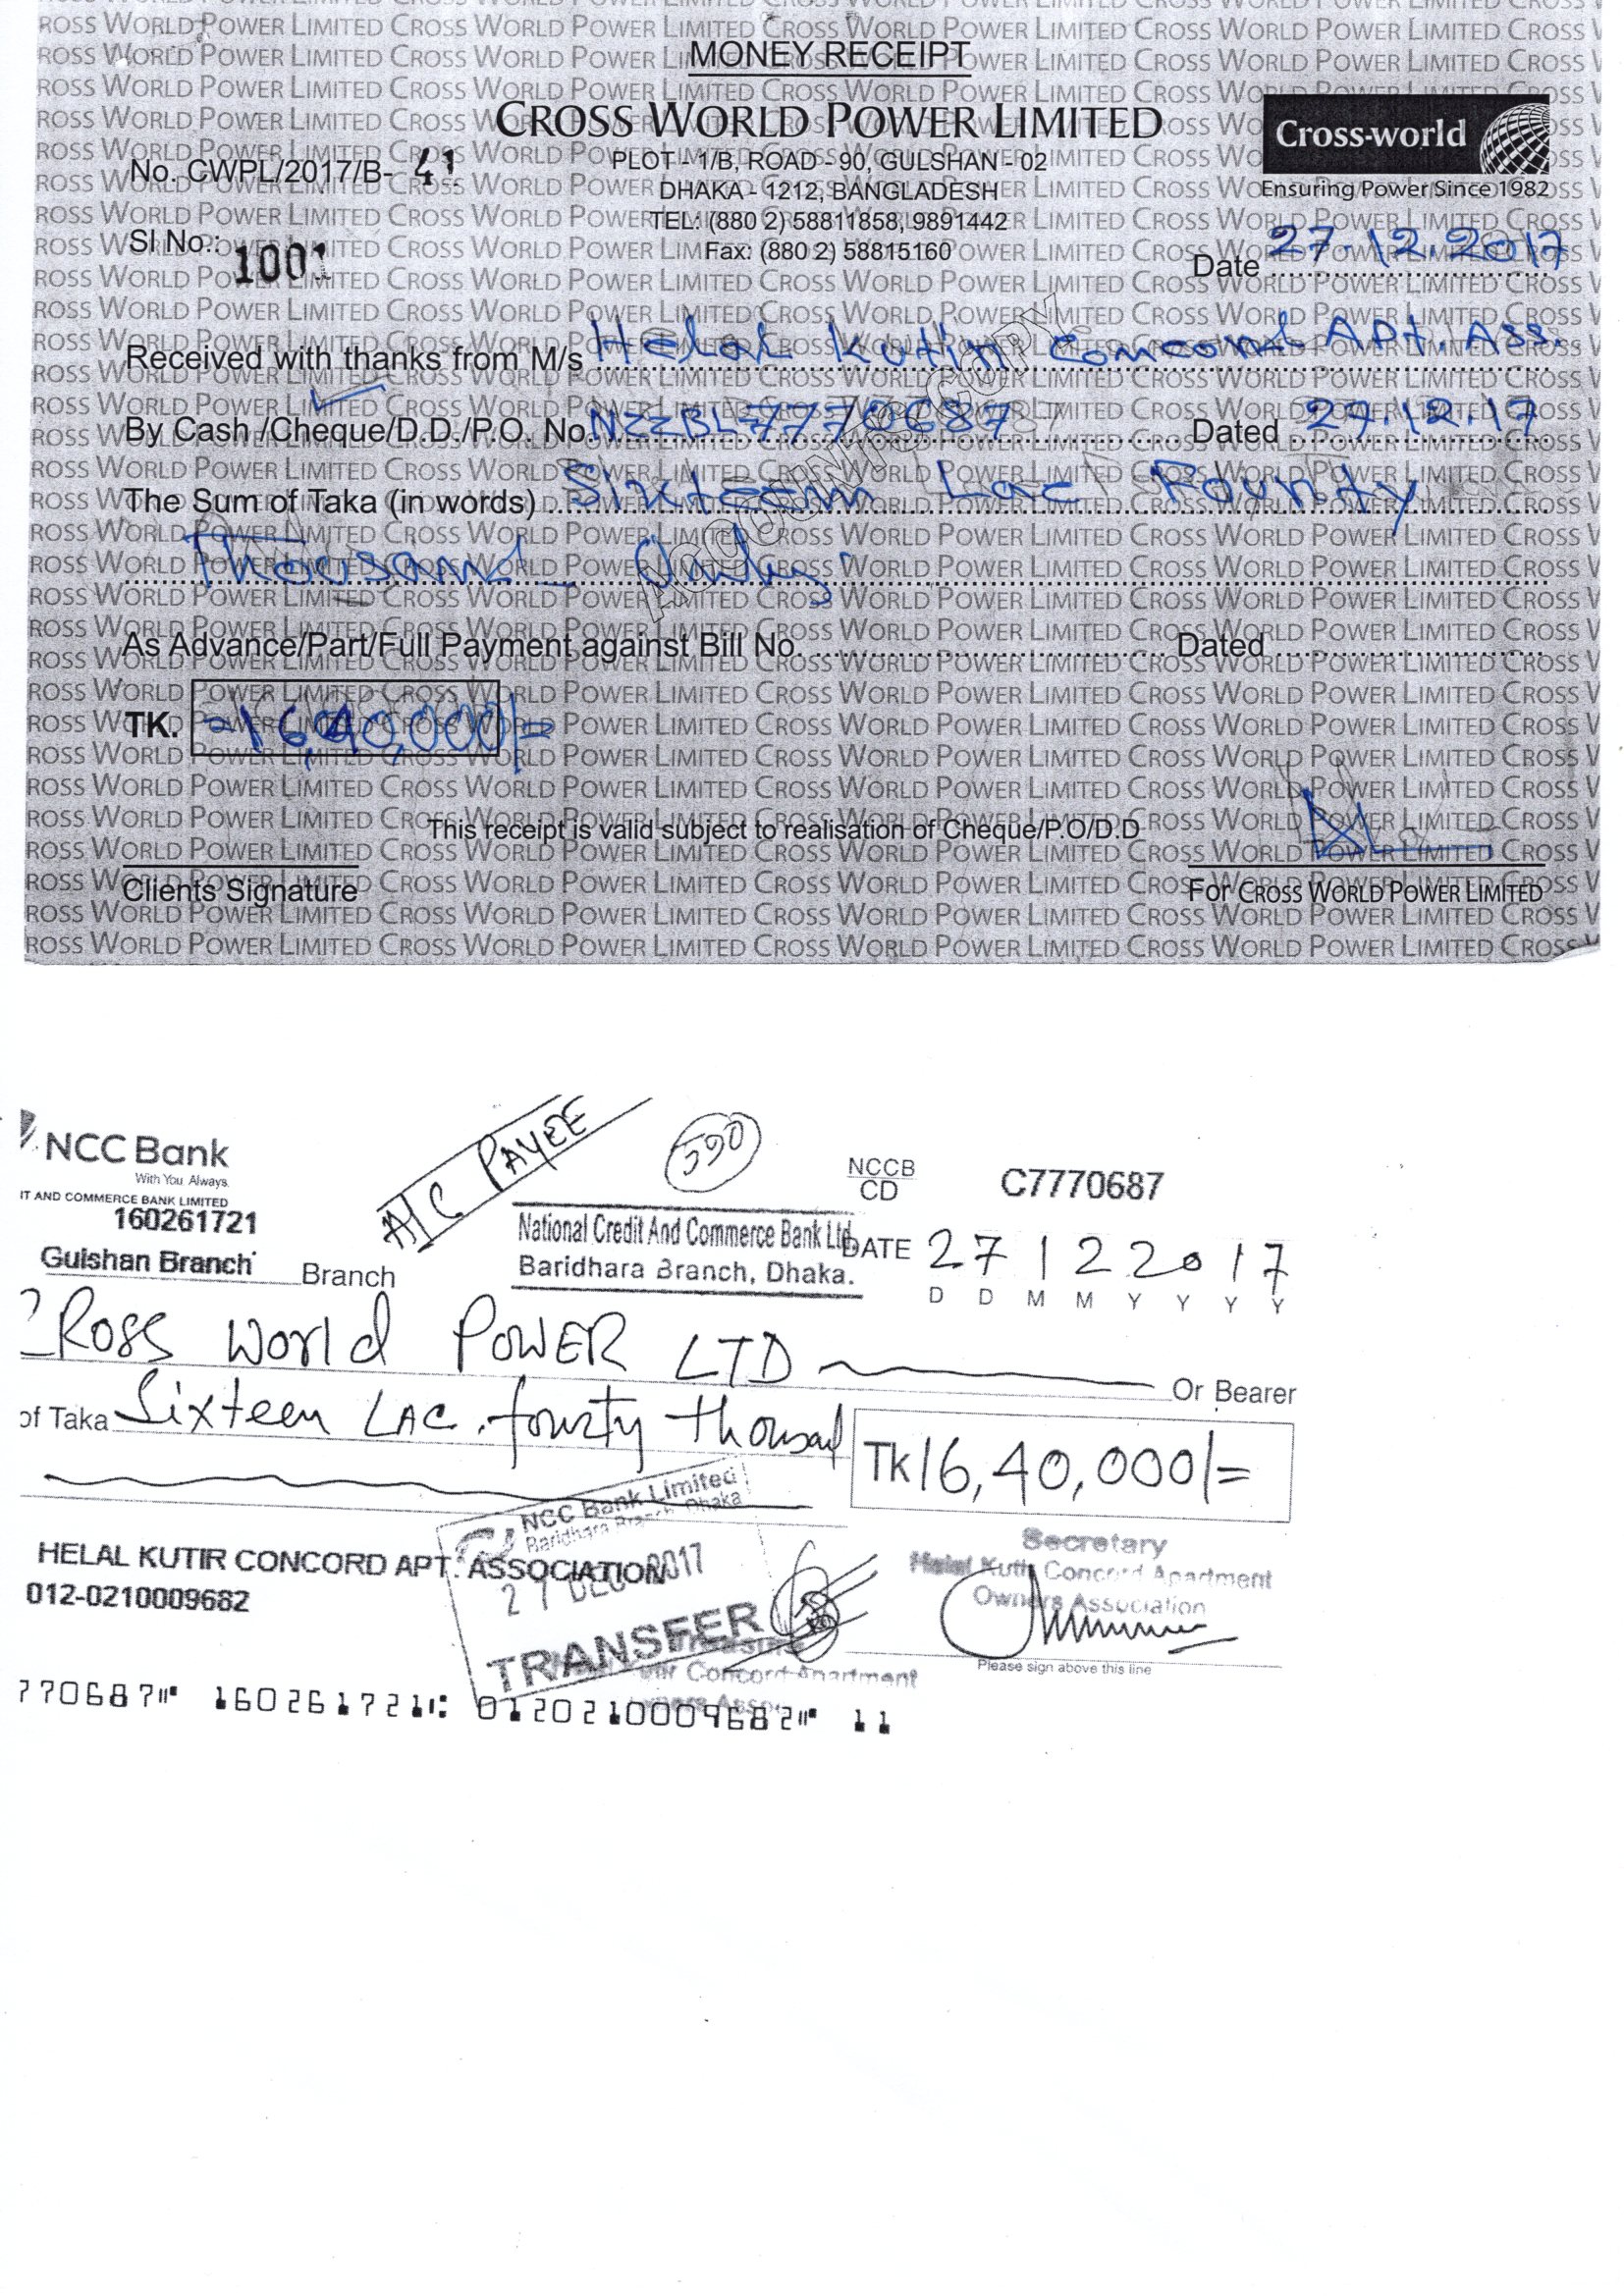 MONEY RECEIPT
CROSS WORLD POWER LIMITED
Cross-world
Ensuring Power Since 1982
No. CWPL/2017/B- 41
PLOT - 1/B, ROAD - 90, GULSHAN - 02
DHAKA - 1212, BANGLADESH
TEL: (880 2) 58811858, 9891442
Fax: (880 2) 58815160
Sl No.: 1001
Date 27.12.2017
Received with thanks from M/s Helal Kutir Concord Apt. Ass.
By Cash /Cheque/D.D./P.O. No. 7770687 Dated 27.12.17
The Sum of Taka (in words) Sixteen Lac Fourty
Thousand Only
Accounts Copy
As Advance/Part/Full Payment against Bill No. Dated
TK. =16,40,000/=
This receipt is valid subject to realisation of Cheque/P.O/D.D
Clients Signature
For CROSS WORLD POWER LIMITED
NCC Bank
With You Always.
IT AND COMMERCE BANK LIMITED
160261721
Gulshan Branch Branch
A/C PAYEE
590
National Credit And Commerce Bank Ltd.
Baridhara Branch, Dhaka.
NCCB
CD
C7770687
DATE 27122017
D D M M Y Y Y Y
CROSS World POWER LTD Or Bearer
of Taka Sixteen LAC. fourty thousand
Tk 16,40,000/=
NCC Bank Limited
Baridhara Branch Dhaka
27 DEC 2017
TRANSFER
HELAL KUTIR CONCORD APT. ASSOCIATION
012-0210009682
Secretary
Helal Kutir Concord Apartment
Owners Association
Please sign above this line
Kutir Concord Apartment
770687 160261721 0120210009682 11